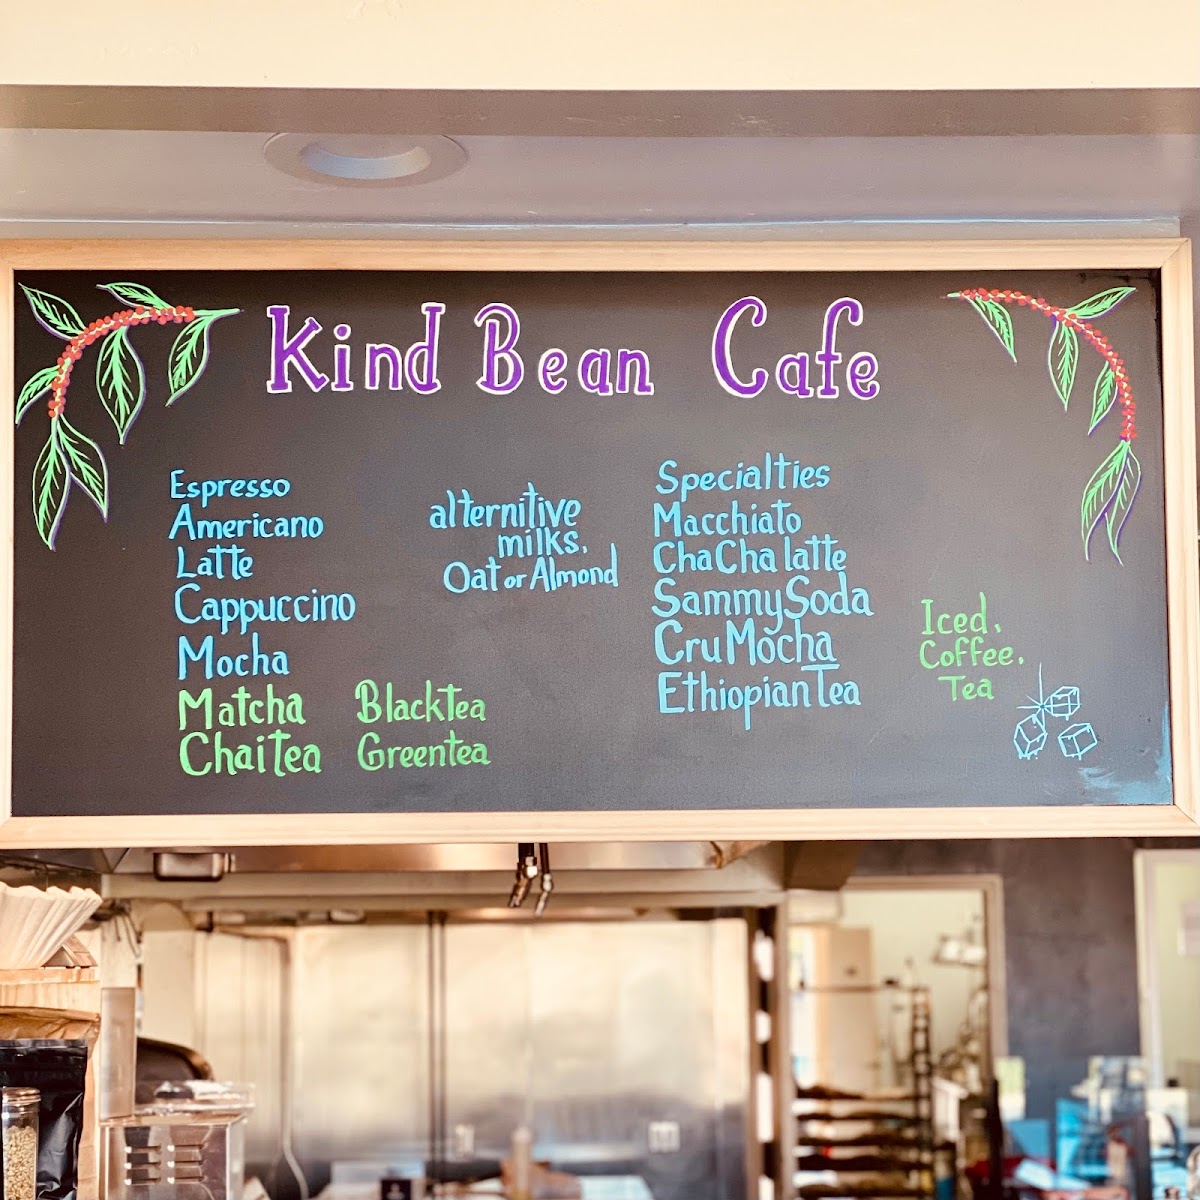 Kind Bean Cafe
Espresso
Americano
Latte
Cappuccino
Mocha
Matcha
Chai tea
Black tea
Green tea
alternitive
milks.
Oat or Almond
Specialties
Macchiato
ChaCha latte
Sammy Soda
Cru Mocha
Ethiopian Tea
Iced.
Coffee.
Tea